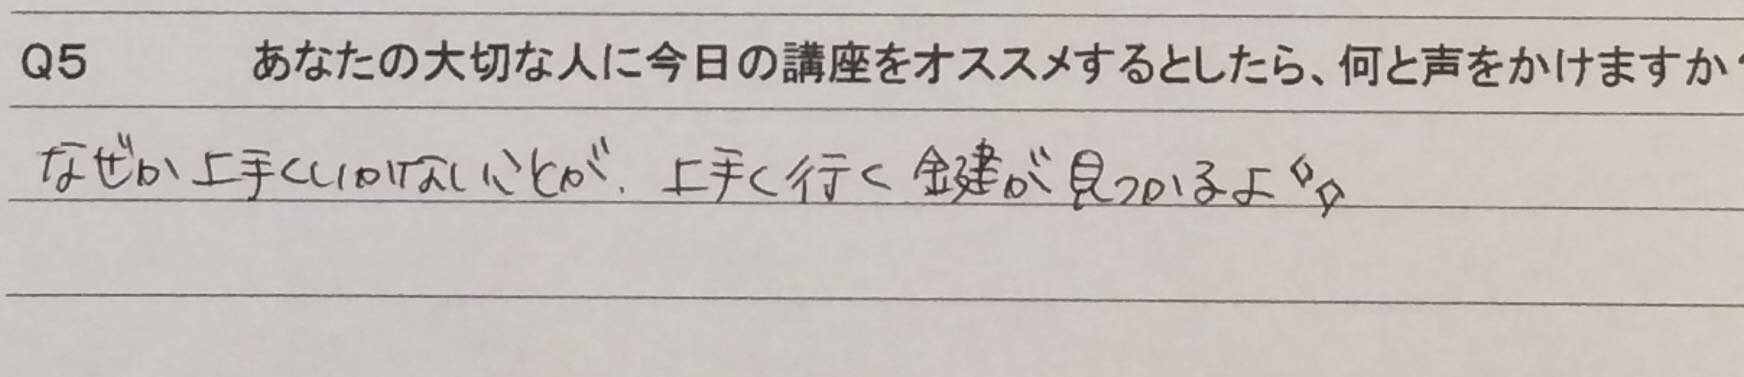 Q5 あなたの大切な人に今日の講座をオススメするとしたら、何と声をかけますか
なぜか上手くいかないことが、上手く行く鍵が見つかるよ